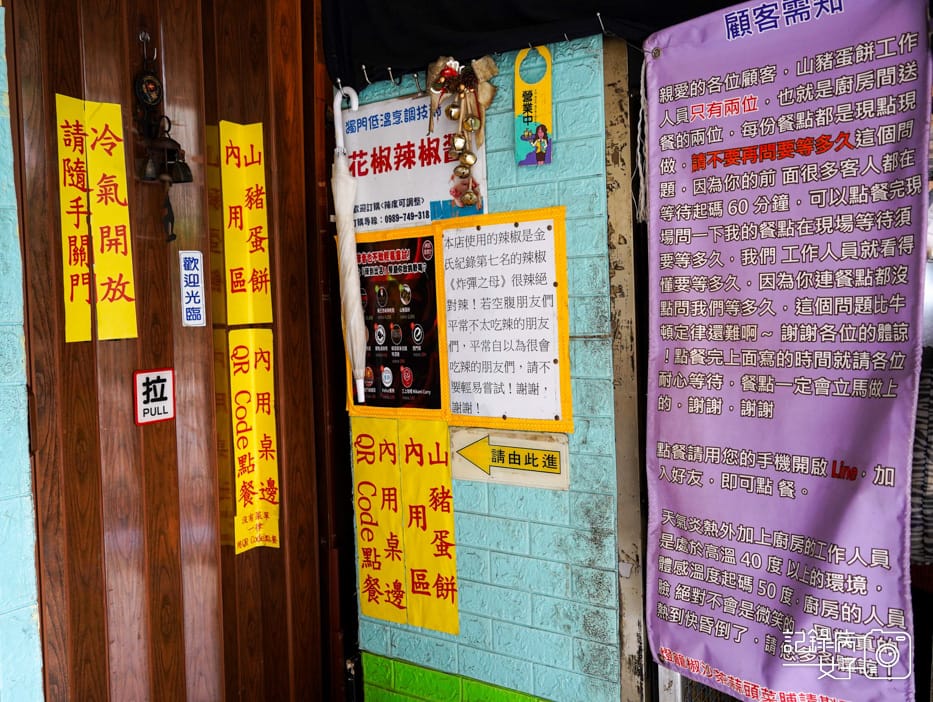 冷氣開放
請隨手關門
歡迎光臨
拉
PULL
山豬蛋餅
內用區
內用桌邊
QR Code點餐
沒有菜單
一律
獨門低溫烹調技術
花椒辣椒醬
歡迎訂購<辣度可調整>
訂購專線：0989-749-318
營業中
本店使用的辣椒是金
氏紀錄第七名的辣椒
《炸彈之母》很辣絕
對辣！若空腹朋友們
平常不太吃辣的朋友
們，平常自以為很會
吃辣的朋友們，請不
要輕易嘗試！謝謝，
謝謝！
請由此進
山豬蛋餅
內用區
內用桌邊
QR Code點餐
顧客需知
親愛的各位顧客，山豬蛋餅工作
人員只有兩位，也就是廚房間送
餐的兩位，每份餐點都是現點現
做，請不要再問要等多久這個問
題，因為你的前面很多客人都在
等待起碼 60 分鐘，可以點餐完現
場問一下我的餐點在現場等待須
要等多久，我們 工作人員就看得
懂要等多久，因為你連餐點都沒
點問我們等多久，這個問題比牛
頓定律還難啊～ 謝謝各位的體諒
！點餐完上面寫的時間就請各位
耐心等待，餐點一定會立馬做上
的，謝謝，謝謝
點餐請用您的手機開啟 Line，加
入好友，即可點 餐。
天氣炎熱外加上廚房的工作人員
是處於高溫 40 度以上的環境，
體感溫度起碼 50 度，廚房的人員
臉 絕對不會是微笑的，
熱到快昏倒了，請您多
記錄俩
女子